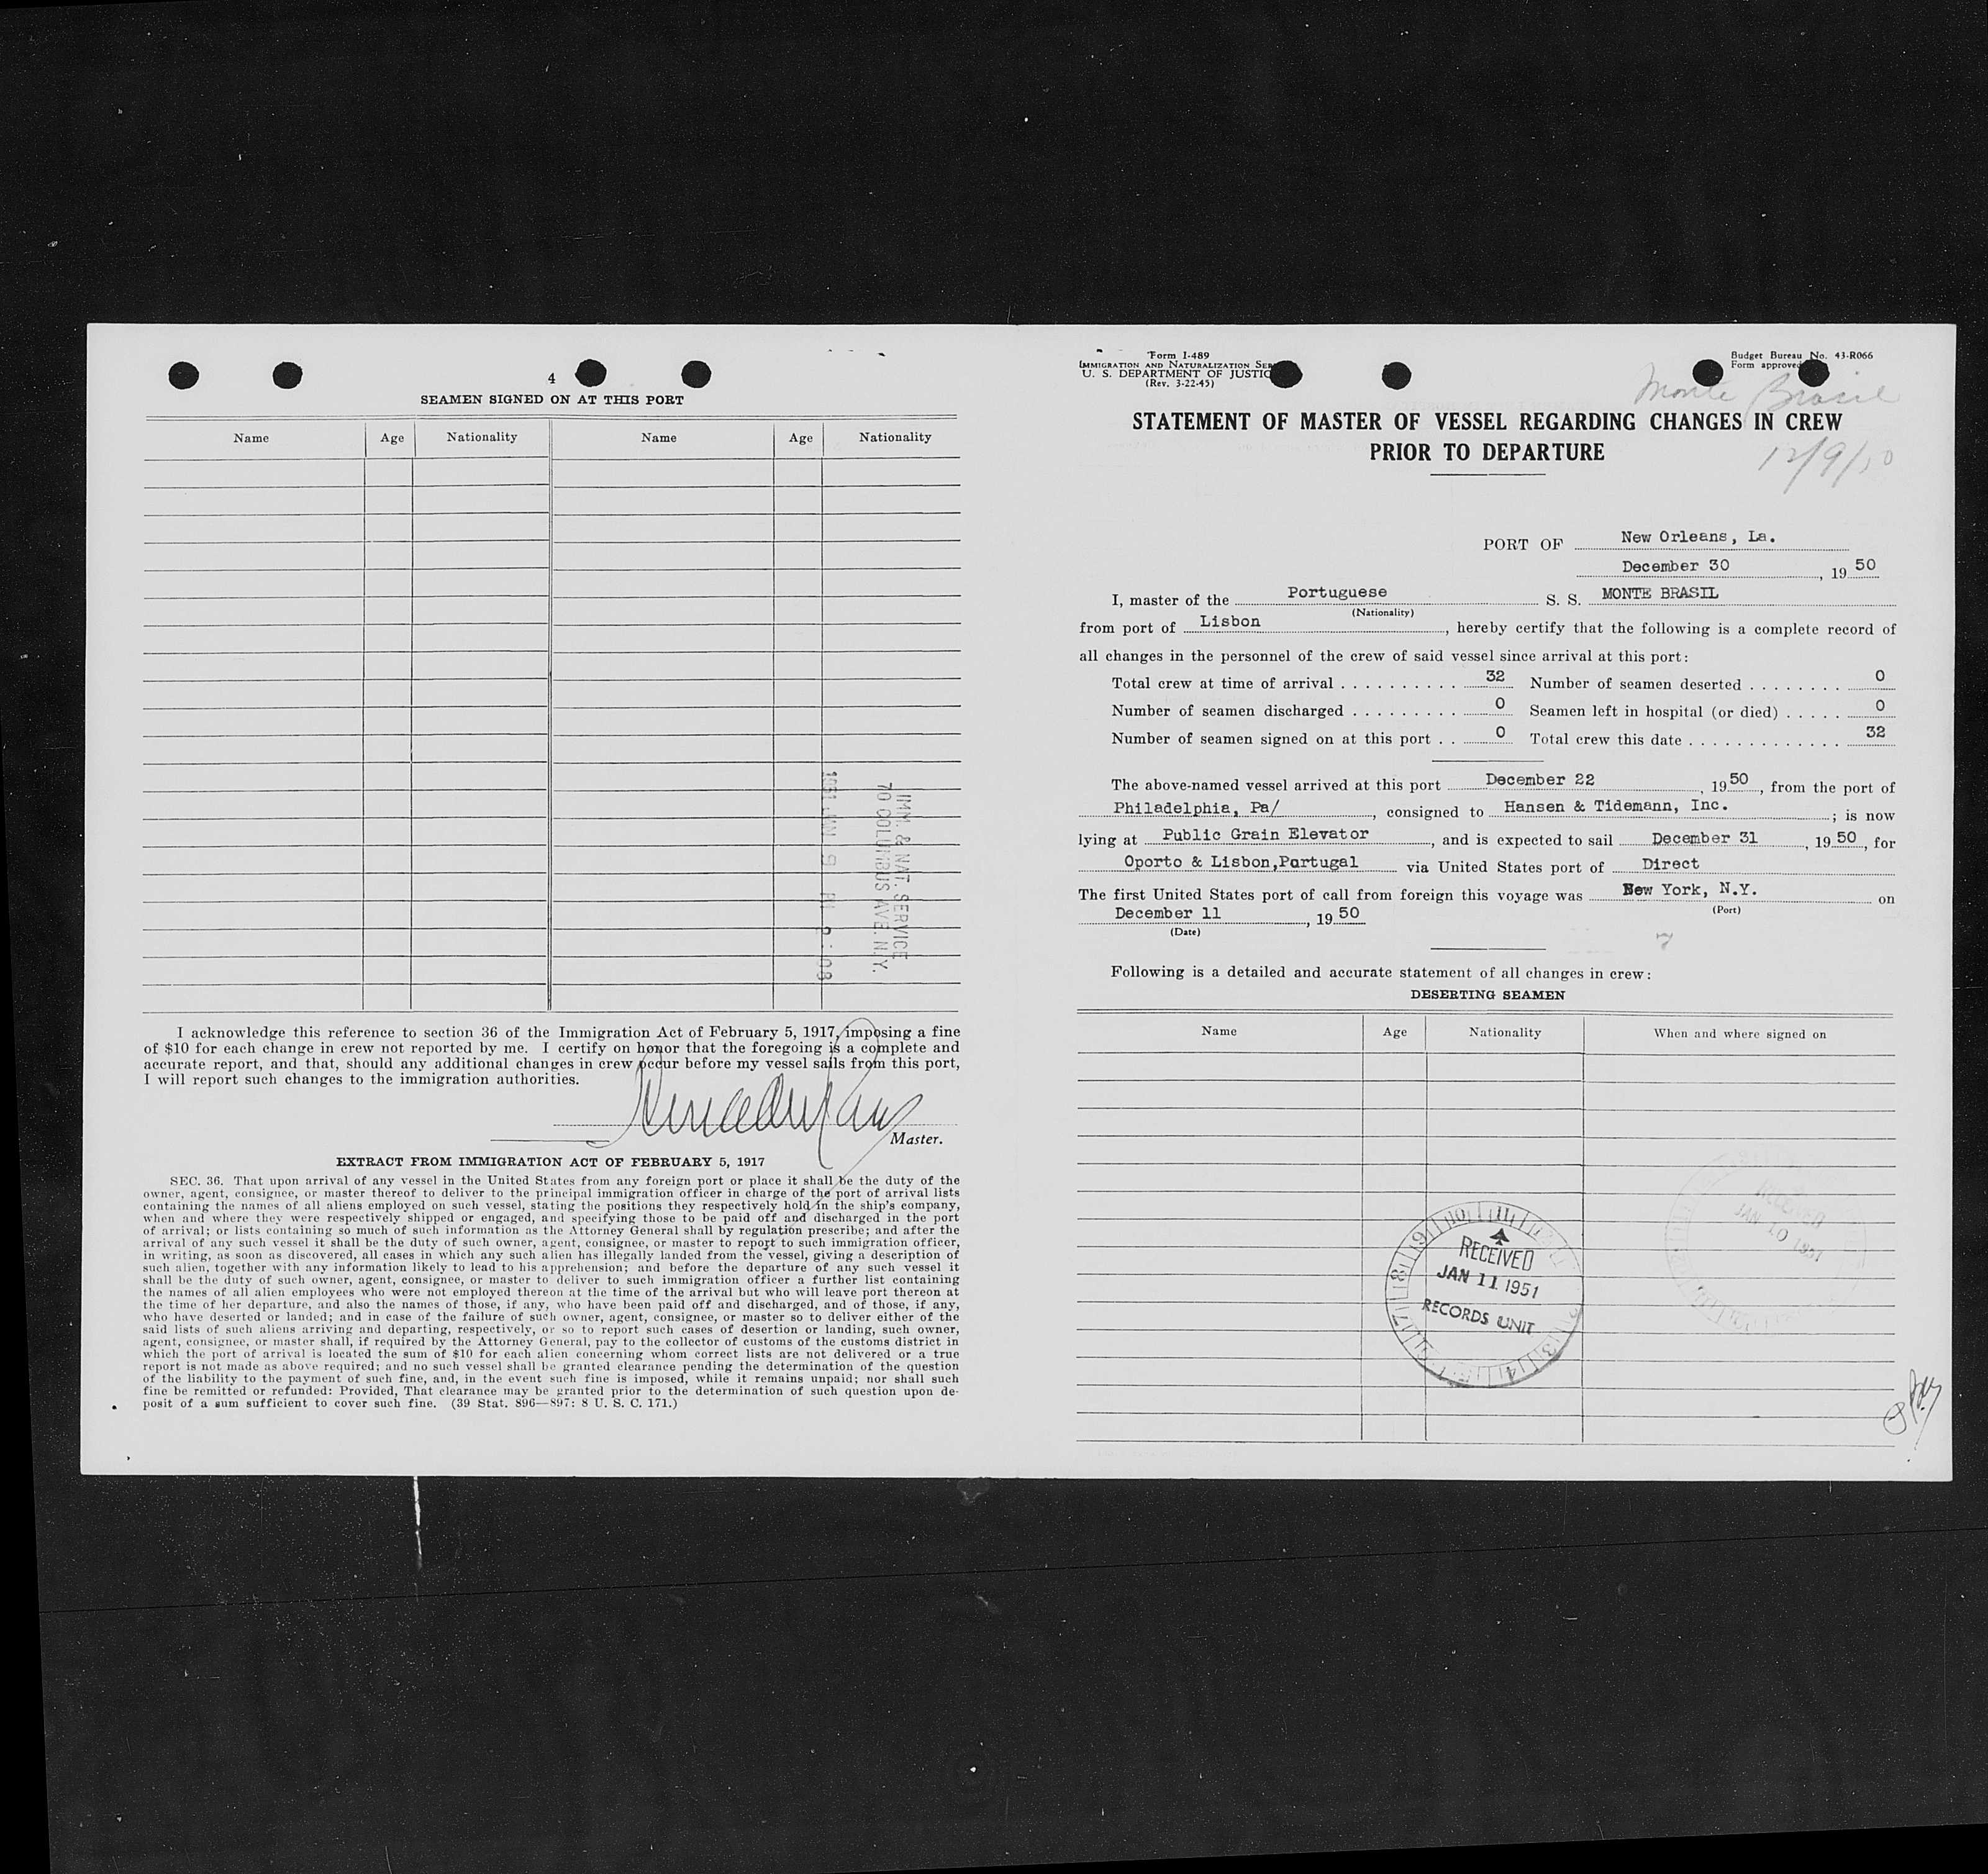 4
SEAMEN SIGNED ON AT THIS PORT
Name Age Nationality Name Age Nationality
IMM. & NAT. SERVICE
70 COLUMBUS AVE. N.Y.
1951 JAN 9
I acknowledge this reference to section 36 of the Immigration Act of February 5, 1917, imposing a fine
of $10 for each change in crew not reported by me. I certify on honor that the foregoing is a complete and
accurate report, and that, should any additional changes in crew occur before my vessel sails from this port,
I will report such changes to the immigration authorities.
Master.
EXTRACT FROM IMMIGRATION ACT OF FEBRUARY 5, 1917
SEC. 36. That upon arrival of any vessel in the United States from any foreign port or place it shall be the duty of the
owner, agent, consignee, or master thereof to deliver to the principal immigration officer in charge of the port of arrival lists
containing the names of all aliens employed on such vessel, stating the positions they respectively hold in the ship's company,
when and where they were respectively shipped or engaged, and specifying those to be paid off and discharged in the port
of arrival; or lists containing so much of such information as the Attorney General shall by regulation prescribe; and after the
arrival of any such vessel it shall be the duty of such owner, agent, consignee, or master to report to such immigration officer,
in writing, as soon as discovered, all cases in which any such alien has illegally landed from the vessel, giving a description of
such alien, together with any information likely to lead to his apprehension; and before the departure of any such vessel it
shall be the duty of such owner, agent, consignee, or master to deliver to such immigration officer a further list containing
the names of all alien employees who were not employed thereon at the time of the arrival but who will leave port thereon at
the time of her departure, and also the names of those, if any, who have been paid off and discharged, and of those, if any,
who have deserted or landed; and in case of the failure of such owner, agent, consignee, or master so to deliver either of the
said lists of such aliens arriving and departing, respectively, or so to report such cases of desertion or landing, such owner,
agent, consignee, or master shall, if required by the Attorney General, pay to the collector of customs of the customs district in
which the port of arrival is located the sum of $10 for each alien concerning whom correct lists are not delivered or a true
report is not made as above required; and no such vessel shall be granted clearance pending the determination of the question
of the liability to the payment of such fine, and, in the event such fine is imposed, while it remains unpaid; nor shall such
fine be remitted or refunded: Provided, That clearance may be granted prior to the determination of such question upon de-
posit of a sum sufficient to cover such fine. (39 Stat. 896—897; 8 U. S. C. 171.)
Form I-489
IMMIGRATION AND NATURALIZATION SER
U. S. DEPARTMENT OF JUSTIC
(Rev. 3-22-45)
Budget Bureau No. 43-R066
Form approved
Monte Brasil
STATEMENT OF MASTER OF VESSEL REGARDING CHANGES IN CREW
PRIOR TO DEPARTURE
12/9/50
PORT OF New Orleans, La.
December 30, 19 50
I, master of the Portuguese S. S. MONTE BRASIL
(Nationality)
from port of Lisbon, hereby certify that the following is a complete record of
all changes in the personnel of the crew of said vessel since arrival at this port:
Total crew at time of arrival 32 Number of seamen deserted 0
Number of seamen discharged 0 Seamen left in hospital (or died) 0
Number of seamen signed on at this port 0 Total crew this date 32
The above-named vessel arrived at this port December 22, 19 50, from the port of
Philadelphia, Pa/, consigned to Hansen & Tidemann, Inc.; is now
lying at Public Grain Elevator, and is expected to sail December 31, 19 50, for
Oporto & Lisbon,Portugal via United States port of Direct
The first United States port of call from foreign this voyage was New York, N.Y. on
(Port)
December 11, 19 50
(Date)
Following is a detailed and accurate statement of all changes in crew:
DESERTING SEAMEN
Name Age Nationality When and where signed on
RECEIVED
JAN 11 1951
RECORDS UNIT
RECEIVED
JAN 10 1951